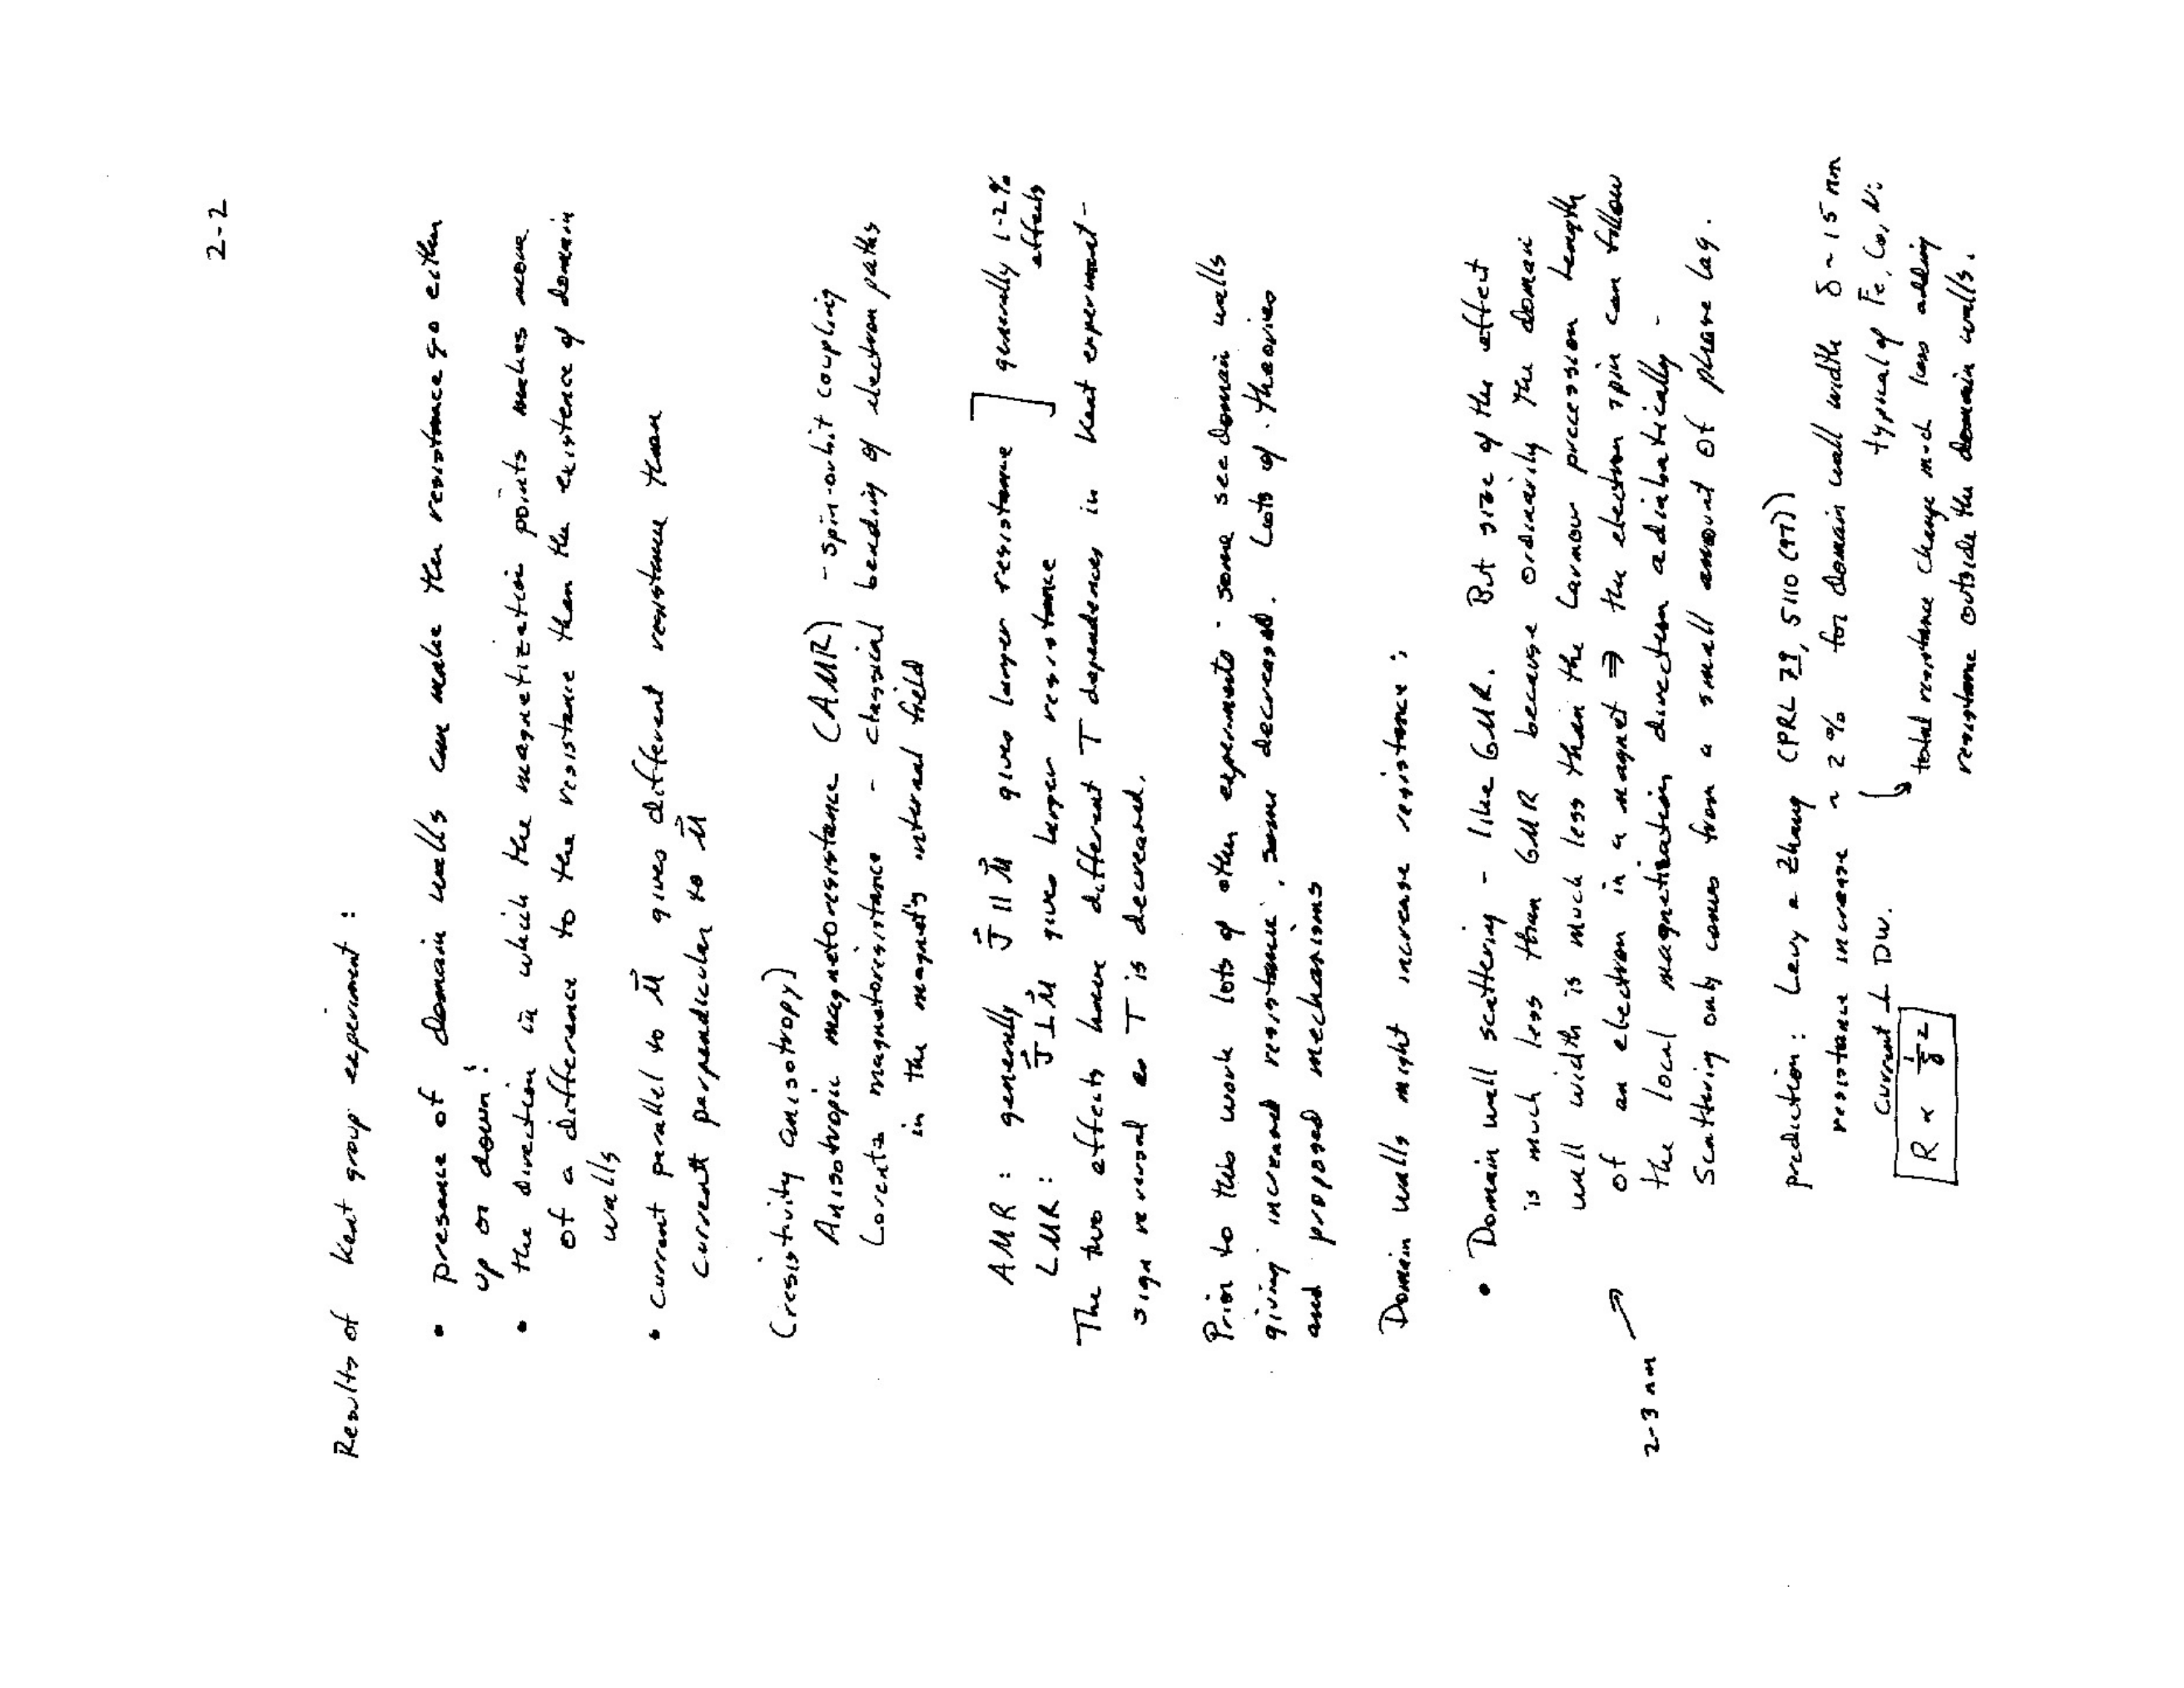 2-2
Results of Kent group experiment :
• presence of domain walls can make the resistance go either
up or down!
• the direction in which the magnetization points makes more
of a difference to the resistance than the existence of domain
walls
• current parallel to M⃗ gives different resistance than
current perpendicular to M⃗
(resistivity anisotropy)
Anisotropic magnetoresistance (AMR) - spin-orbit coupling
Lorentz magnetoresistance - classical bending of electron paths
in the magnet's internal field
AMR : generally J⃗ || M⃗ gives larger resistance ] generally 1-2%
LMR : J⃗ ⊥ M⃗ gives larger resistance effects
The two effects have different T dependences in Kent experiment -
sign reversal as T is decreased.
Prior to this work lots of other experiments - some see domain walls
giving increased resistance, some decreased. Lots of theories
and proposed mechanisms
Domain walls might increase resistance :
• Domain wall scattering - like GMR. But size of the effect
is much less than GMR because ordinarily the domain
wall width is much less than the Larmor precession length
2-3 nm ↗ of an electron in a magnet ⇒ the electron spin can follow
the local magnetization direction adiabatically -
Scattering only comes from a small amount of phase lag.
prediction: Levy & Zhang (PRL 79, 5110 (97))
resistance increase ~ 2% for domain wall width δ ~ 15 nm
current ⊥ DW. typical of Fe, Co, Ni
R ∝ 1/δ²
↳ total resistance change much less adding
resistance outside the domain walls.